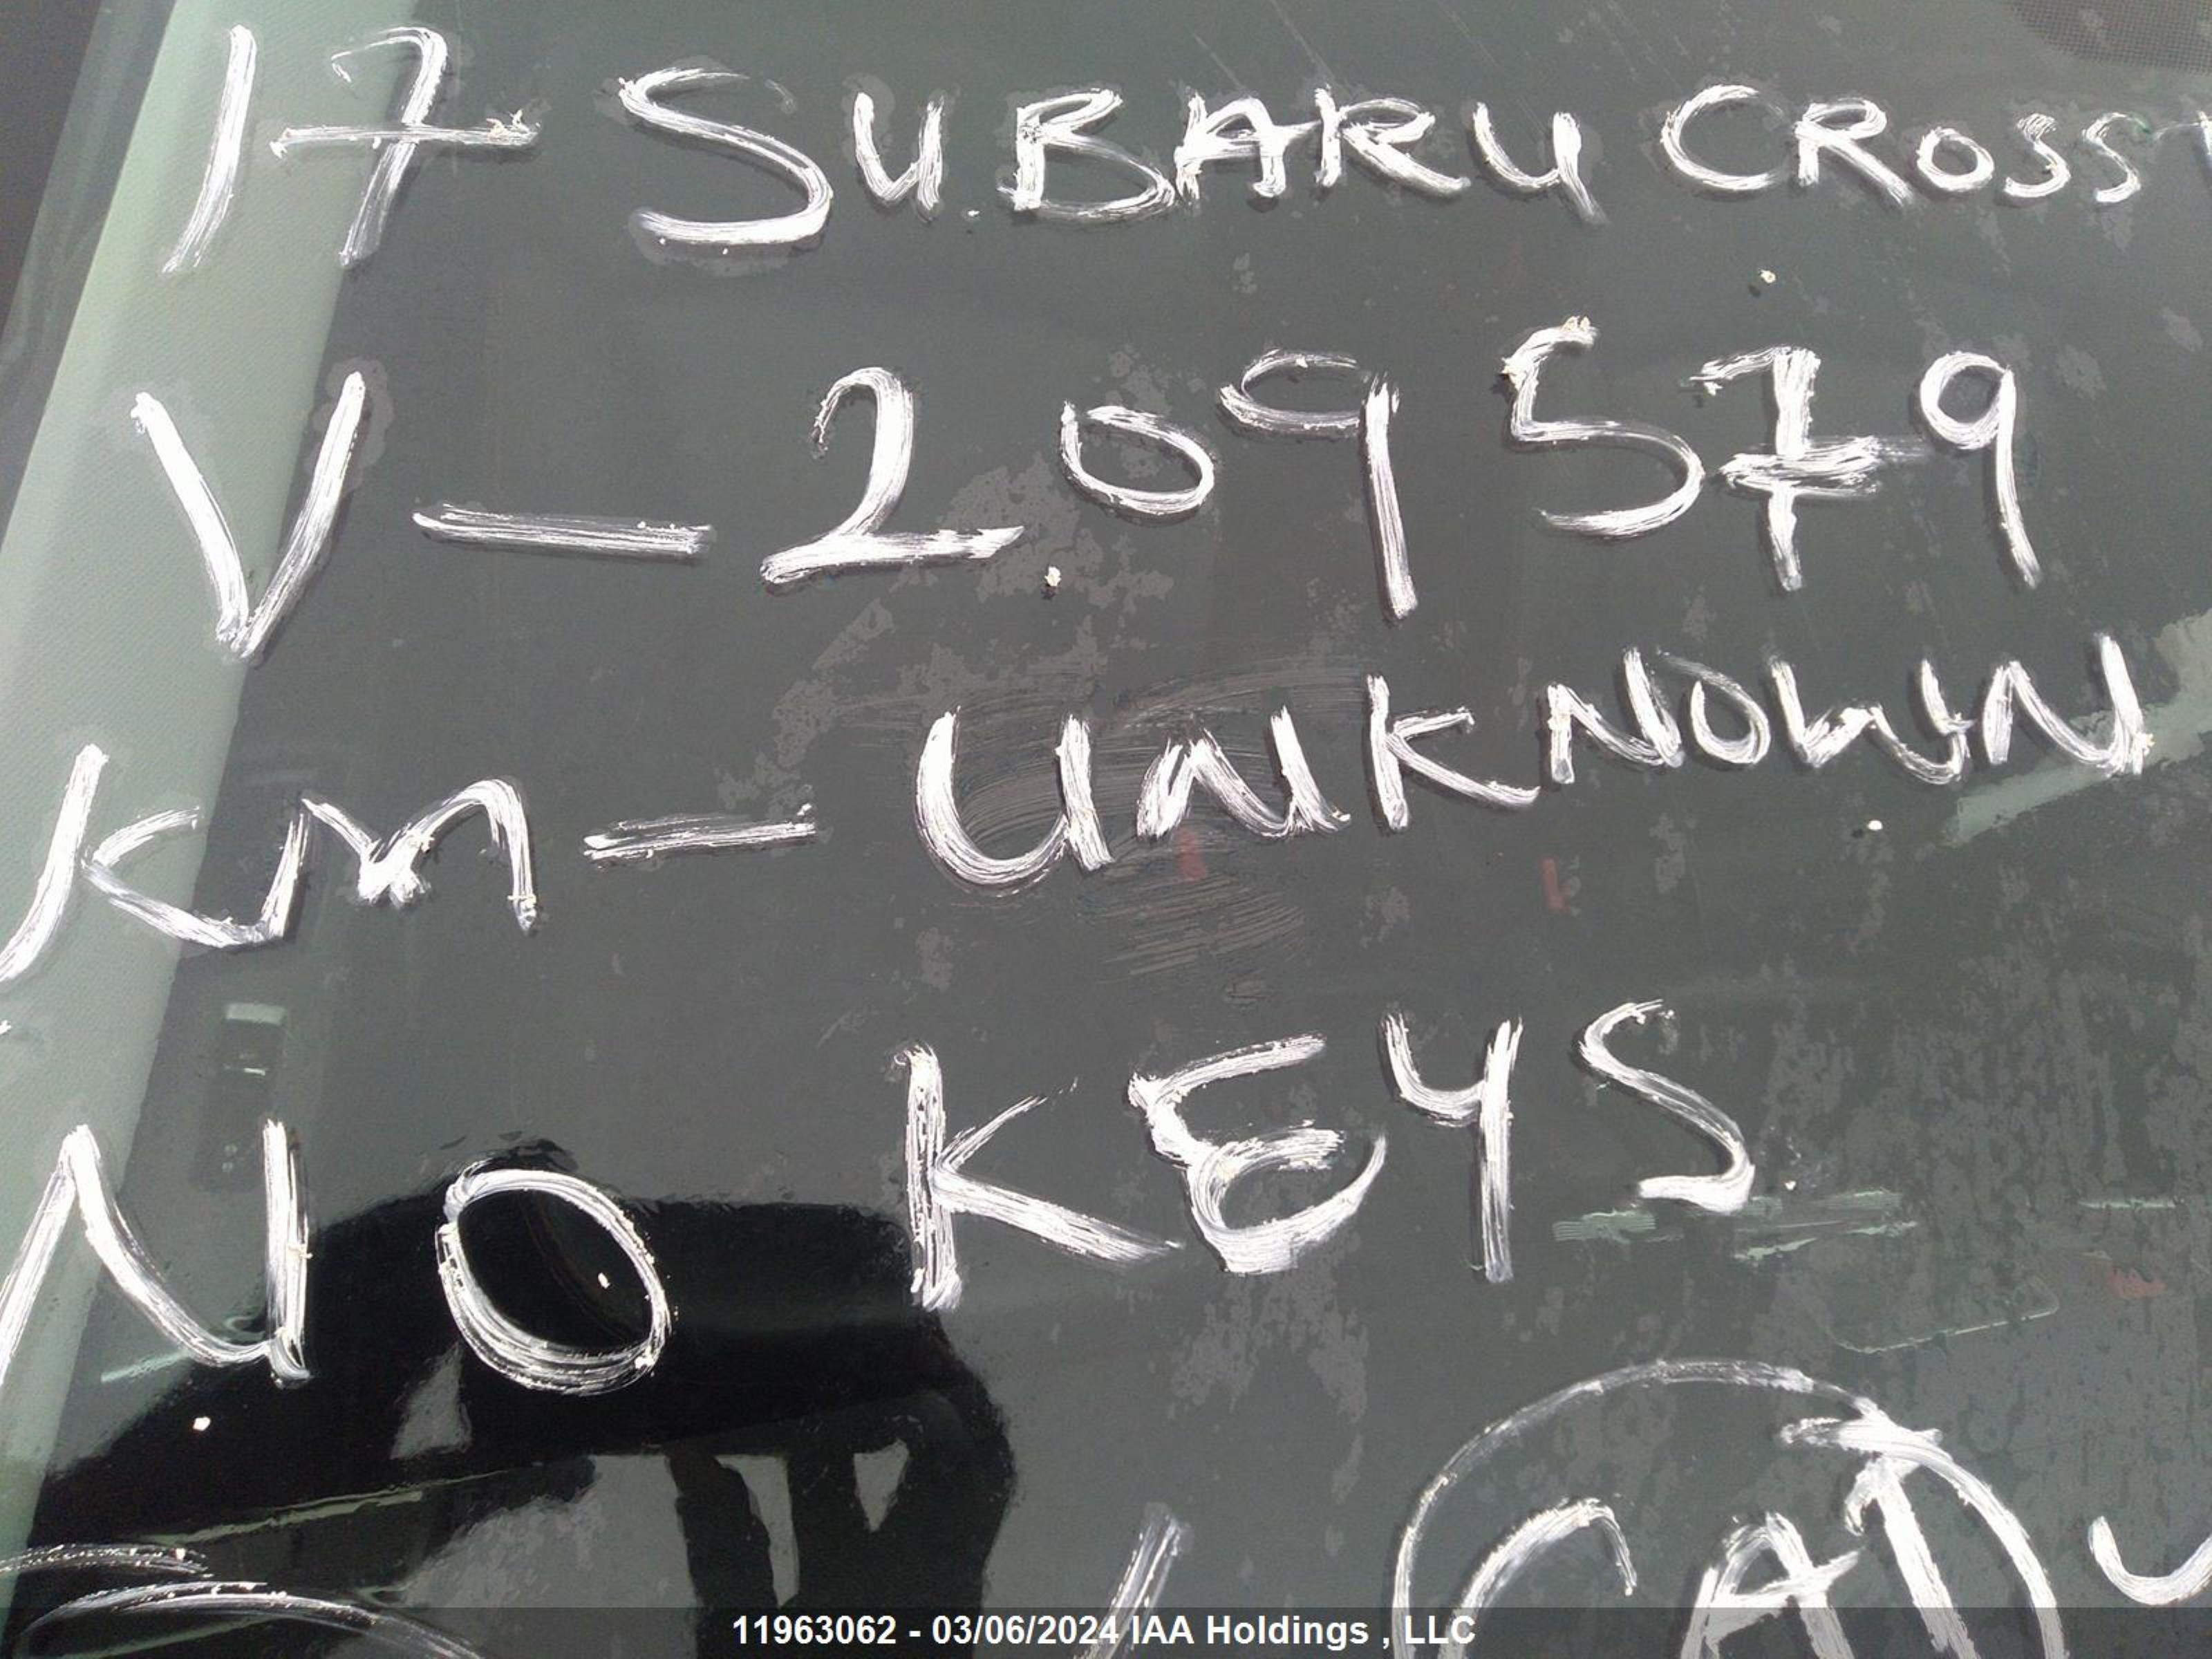 17 SUBARU CROSS
V - 209579
KM - UNKNOWN
NO KEYS
CAT
11963062 - 03/06/2024 IAA Holdings , LLC